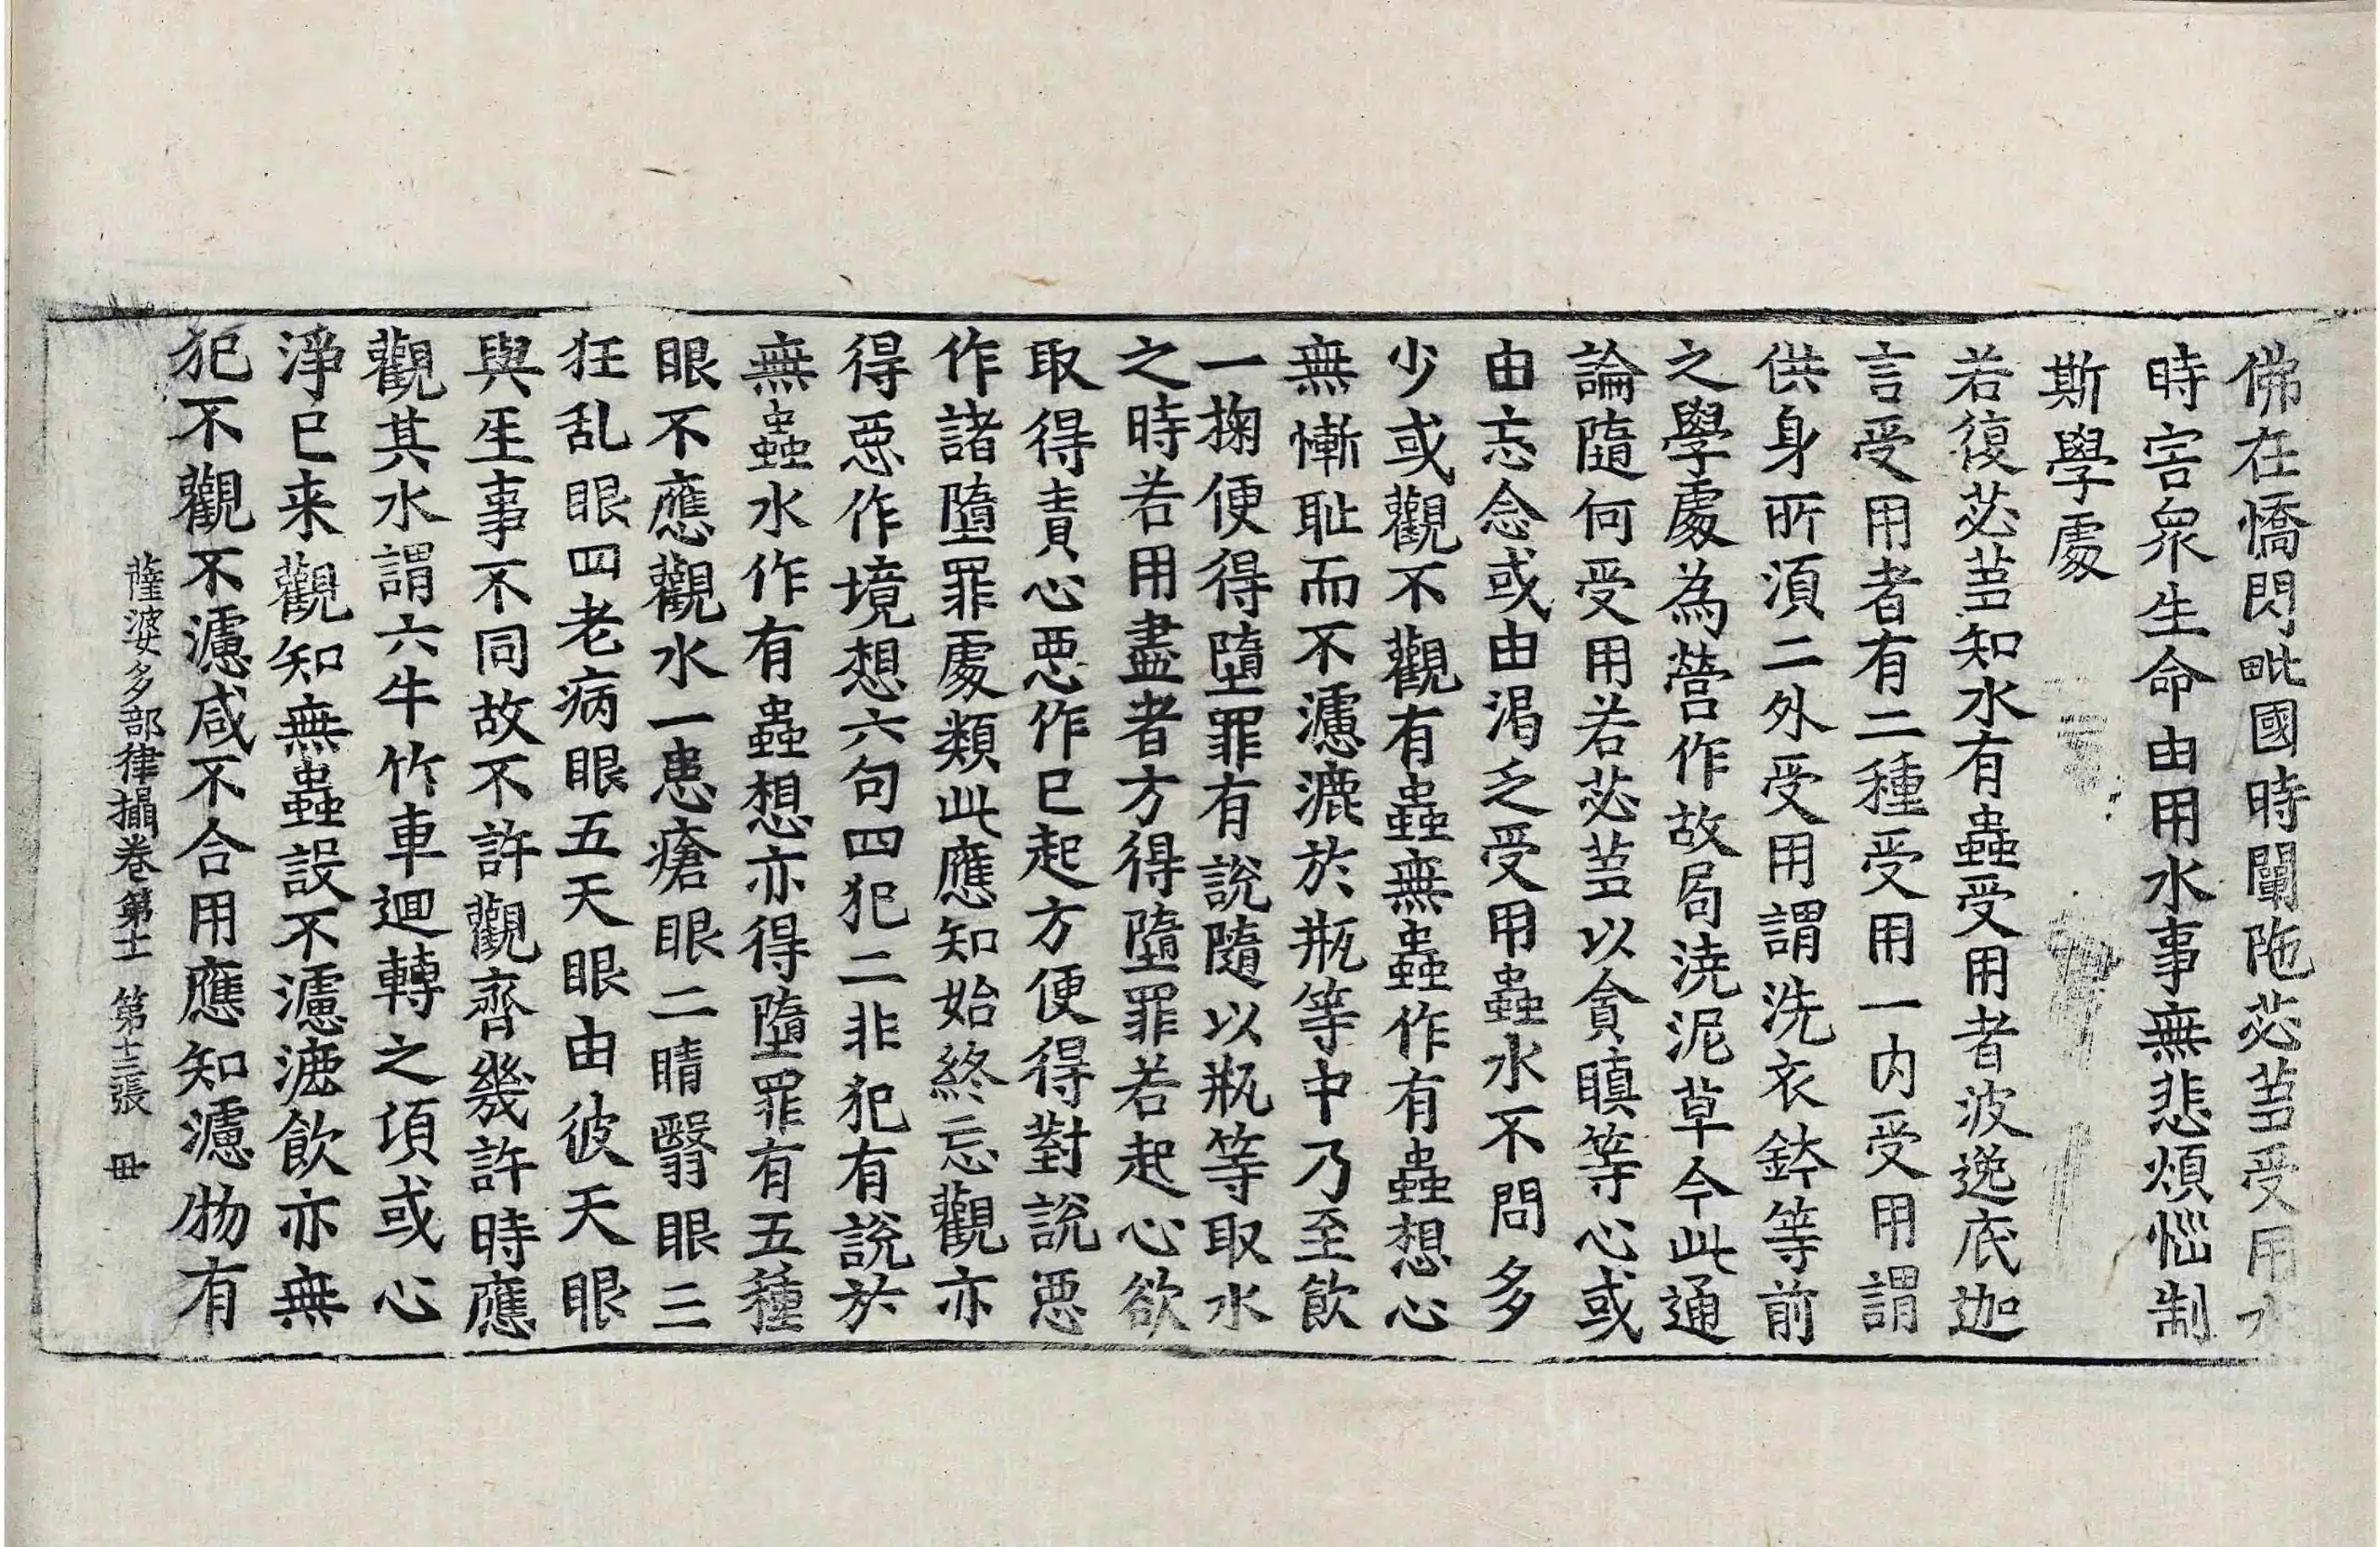 佛在憍閃毗國時闡陁苾蒭受用水
時害衆生命由用水事無悲煩惱制
斯學處
若復苾蒭知水有蟲受用者波逸底迦
言受用者有二種受用一内受用謂
供身所湏二外受用謂洗衣鉢等前
之學處為營作故局澆泥草今此通
論隨何受用若苾蒭以貪瞋等心或
由忘念或由渴乏受用蟲水不問多
少或觀不觀有蟲無蟲作有蟲想心
無慚耻而不濾漉於瓶等中乃至飲
一掬便得墮罪有說隨以瓶等取水
之時若用盡者方得墮罪若起心欲
取得責心惡作已起方便得對說惡
作諸墮罪處類此應知始終忘觀亦
得惡作境想六句四犯二非犯有說於
無蟲水作有蟲想亦得墮罪有五種
眼不應觀水一患瘡眼二睛瞖眼三
狂乱眼四老病眼五天眼由彼天眼
與生事不同故不許觀齊幾許時應
觀其水謂六牛竹車迴轉之項或心
淨已来觀知無蟲設不濾漉飲亦無
犯不觀不濾咸不合用應知濾物有
薩婆多部律攝卷第十一 第十三張 毌